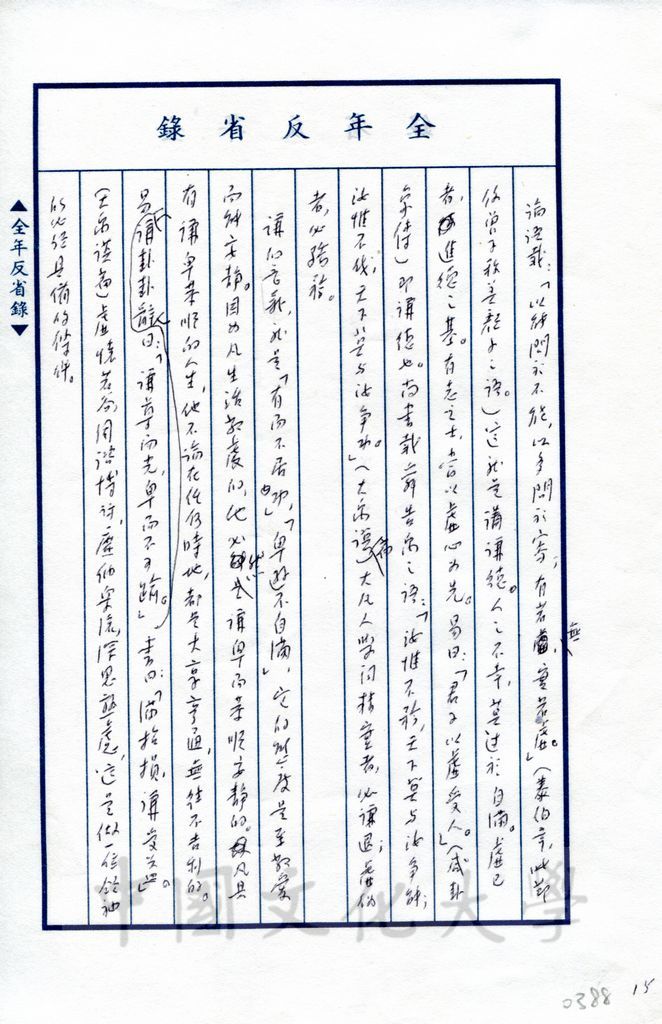 全年反省錄
論語載：「以能問於不能，以多問於寡；有若無，實若虛。」（泰伯章，此節
係曾子敘羨顏子之語。）這就是講謙德。人之不幸，莫過於自滿。虛己
者，進德之基。有志之士，當以虛心為先。易曰：「君子以虛受人。」（咸卦
象傳）即謙德也。尚書載舜告禹之語：「汝惟不矜，天下莫與汝爭能；
汝惟不伐，天下莫與汝爭功。」（大禹謨）大凡人學問積實者，必謙退；虛偽
者，必驕矜。
謙的意義，就是「有而不居功」，「卑遜不自滿」，它的態度是至敬愛
而能安靜。因為凡生活敬虔的，他必然謙卑而柔順安靜的。凡具
有謙卑柔順的人生，他不論在任何時地，都是大享亨通，無往不吉利的。
易謙卦卦辭曰：「謙尊而光，卑而不可踰。」書曰：「滿招損，謙受益。」
（大禹謨篇）虛懷若谷，周諮博訪，虛納眾流，深思熟慮，這是做一位領袖
的必須具備的條件。
▲全年反省錄▼
中國文化大學
0388
15